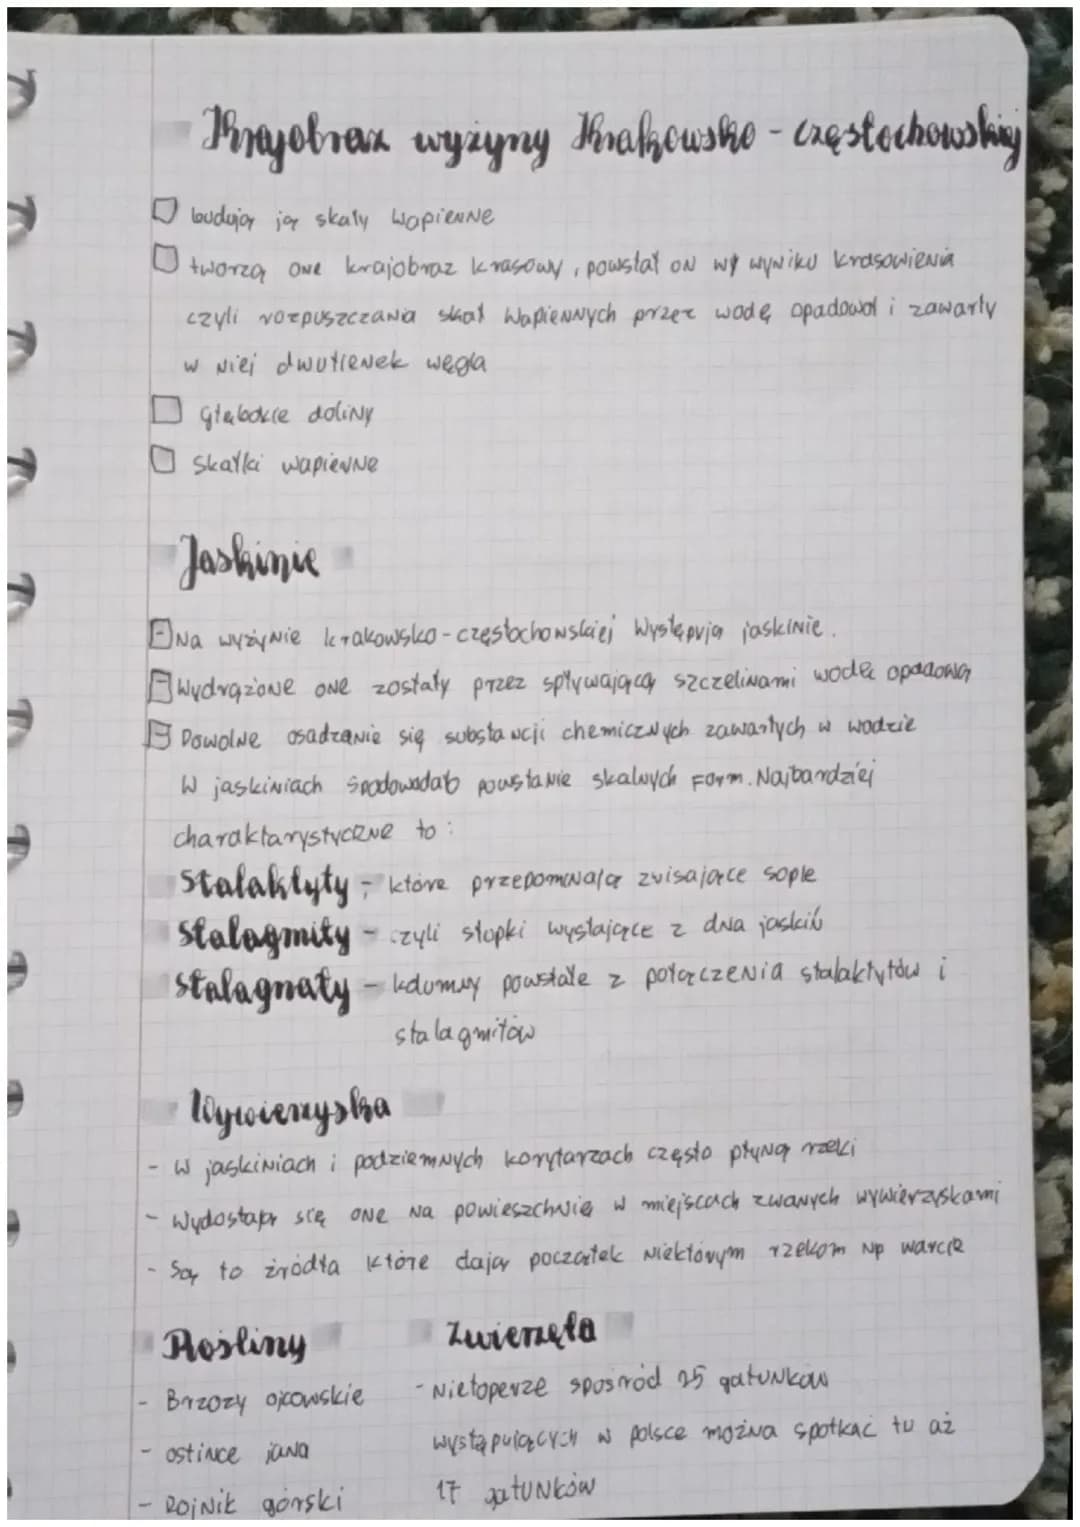 Krajobraz wyżyny Krakowsko - częstochowskiej
budują ją skały wapienne
tworzą one krajobraz krasowy, powstał on wy wyniku krasowienia
czyli rozpuszczania skał wapiennych przez wodę opadową i zawarty
w niej dwutlenek węgla
głębokie doliny
skałki wapienne
Jaskinie
Na wyżynie krakowsko-częstochowskiej występują jaskinie.
Wydrążone one zostały przez spływającą szczelinami wodę opadową
Powolne osadzanie się substancji chemicznych zawartych w wodzie
w jaskiniach powstanie skalnych form. Najbardziej
charaktarystyczne to:
Stalaktyty - które przepominają zwisające sople
Stalagmity - czyli słupki wystające z dna jaskiń
Stalagnaty - kolumny powstałe z połączenia stalaktytów i
stalagmitów
Wywierzyska
- w jaskiniach i podziemnych korytarzach często płyną rzeki
- Wydostają się one na powieszchnię w miejscach zwanych wywierzyskami
- Są to źródła które dają początek niektórym rzekom np warcie
Rośliny
- Brzozy ojcowskie
- ostnice jana
- Rojnik górski
Zwierzęta
- Nietoperze spośród 25 gatunków
występujących w polsce można spotkać tu aż
17 gatunków